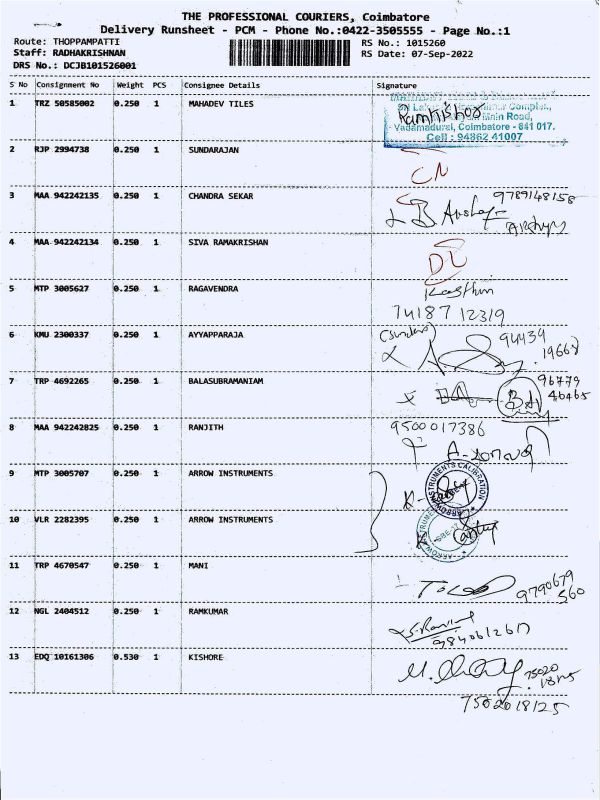 THE PROFESSIONAL COURIERS, Coimbatore
Delivery Runsheet - PCM - Phone No.:0422-3505555 - Page No.:1
Route: THOPPAMPATTI
Staff: RADHAKRISHNAN
DRS No.: DCJB101526001
RS No.: 1015260
RS Date: 07-Sep-2022
S No Consignment No Weight PCS Consignee Details Signature
1 TRZ 50585002 0.250 1 MAHADEV TILES
Ramkishor
Main Road,
Vadamadurai, Coimbatore - 641 017.
Cell : 94862 41007
2 RJP 2994738 0.250 1 SUNDARAJAN
CN
3 MAA 942242135 0.250 1 CHANDRA SEKAR
9789148158
4 MAA 942242134 0.250 1 SIVA RAMAKRISHAN
DL
5 MTP 3005627 0.250 1 RAGAVENDRA
74187 12319
6 KMU 2300337 0.250 1 AYYAPPARAJA
94439
19668
7 TRP 4692265 0.250 1 BALASUBRAMANIAM
96779
46465
8 MAA 942242825 0.250 1 RANJITH
9500017386
9 MTP 3005707 0.250 1 ARROW INSTRUMENTS
10 VLR 2282395 0.250 1 ARROW INSTRUMENTS
11 TRP 4670547 0.250 1 MANI
9790679
560
12 NGL 2404512 0.250 1 RAMKUMAR
9840612617
13 EDQ 10161306 0.530 1 KISHORE
7502018125